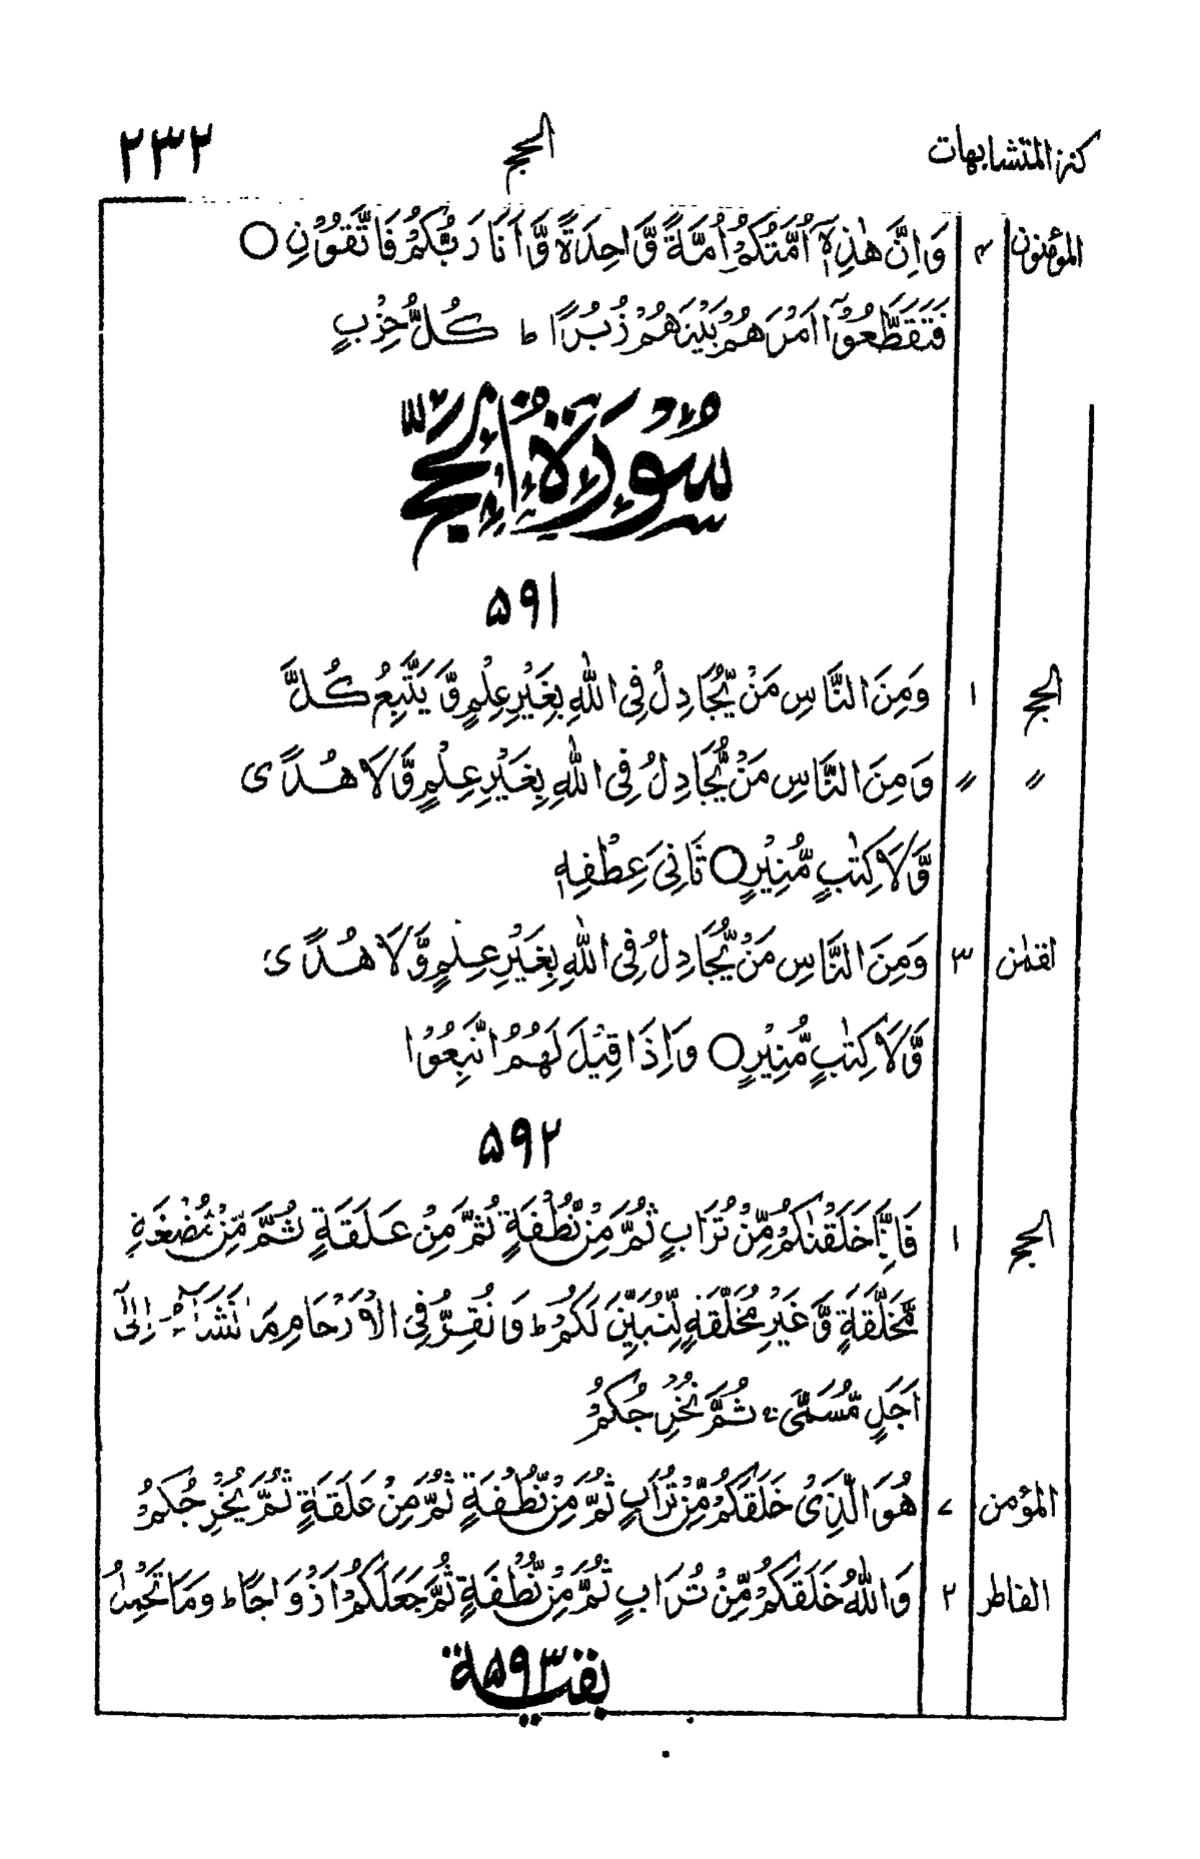 كنز المتشابهات الحج ٢٣٢
المؤمنون ٤ وَاِنَّ هٰذِهٖۤ اُمَّتُكُمْ اُمَّةً وَّاحِدَةً وَّاَنَا رَبُّكُمْ فَاتَّقُوْنِ ○
فَتَقَطَّعُوْۤا اَمْرَهُمْ بَيْنَهُمْ زُبُرًا ؕ كُلُّ حِزْبٍ
سُوْرَةُ الْحَجِّ
۵۹۱
الحج ۱ وَمِنَ النَّاسِ مَنْ يُّجَادِلُ فِى اللّٰهِ بِغَيْرِ عِلْمٍ وَّيَتَّبِعُ كُلَّ
〃 〃 وَمِنَ النَّاسِ مَنْ يُّجَادِلُ فِى اللّٰهِ بِغَيْرِ عِلْمٍ وَّلَا هُدًى
وَّلَا كِتٰبٍ مُّنِيْرٍ ○ ثَانِىَ عِطْفِهٖ
لقمٰن ۳ وَمِنَ النَّاسِ مَنْ يُّجَادِلُ فِى اللّٰهِ بِغَيْرِ عِلْمٍ وَّلَا هُدًى
وَّلَا كِتٰبٍ مُّنِيْرٍ ○ وَاِذَا قِيْلَ لَهُمُ اتَّبِعُوْا
۵۹۲
الحج ۱ فَاِنَّا خَلَقْنٰكُمْ مِّنْ تُرَابٍ ثُمَّ مِنْ نُّطْفَةٍ ثُمَّ مِنْ عَلَقَةٍ ثُمَّ مِنْ مُّضْغَةٍ
مُّخَلَّقَةٍ وَّغَيْرِ مُخَلَّقَةٍ لِّنُبَيِّنَ لَكُمْ ؕ وَنُقِرُّ فِى الْاَرْحَامِ مَا نَشَآءُ اِلٰۤى
اَجَلٍ مُّسَمًّى ثُمَّ نُخْرِجُكُمْ
المؤمن ۷ هُوَ الَّذِىْ خَلَقَكُمْ مِّنْ تُرَابٍ ثُمَّ مِنْ نُّطْفَةٍ ثُمَّ مِنْ عَلَقَةٍ ثُمَّ يُخْرِجُكُمْ
الفاطر ۲ وَاللّٰهُ خَلَقَكُمْ مِّنْ تُرَابٍ ثُمَّ مِنْ نُّطْفَةٍ ثُمَّ جَعَلَكُمْ اَزْوَاجًا ؕ وَمَا تَحْمِلُ
بقية ۵۹۳